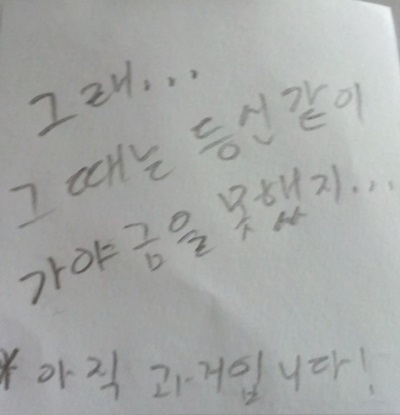 그래...
그 때는 등신같이
가야금을 못했지...
* 아직 과거입니다!